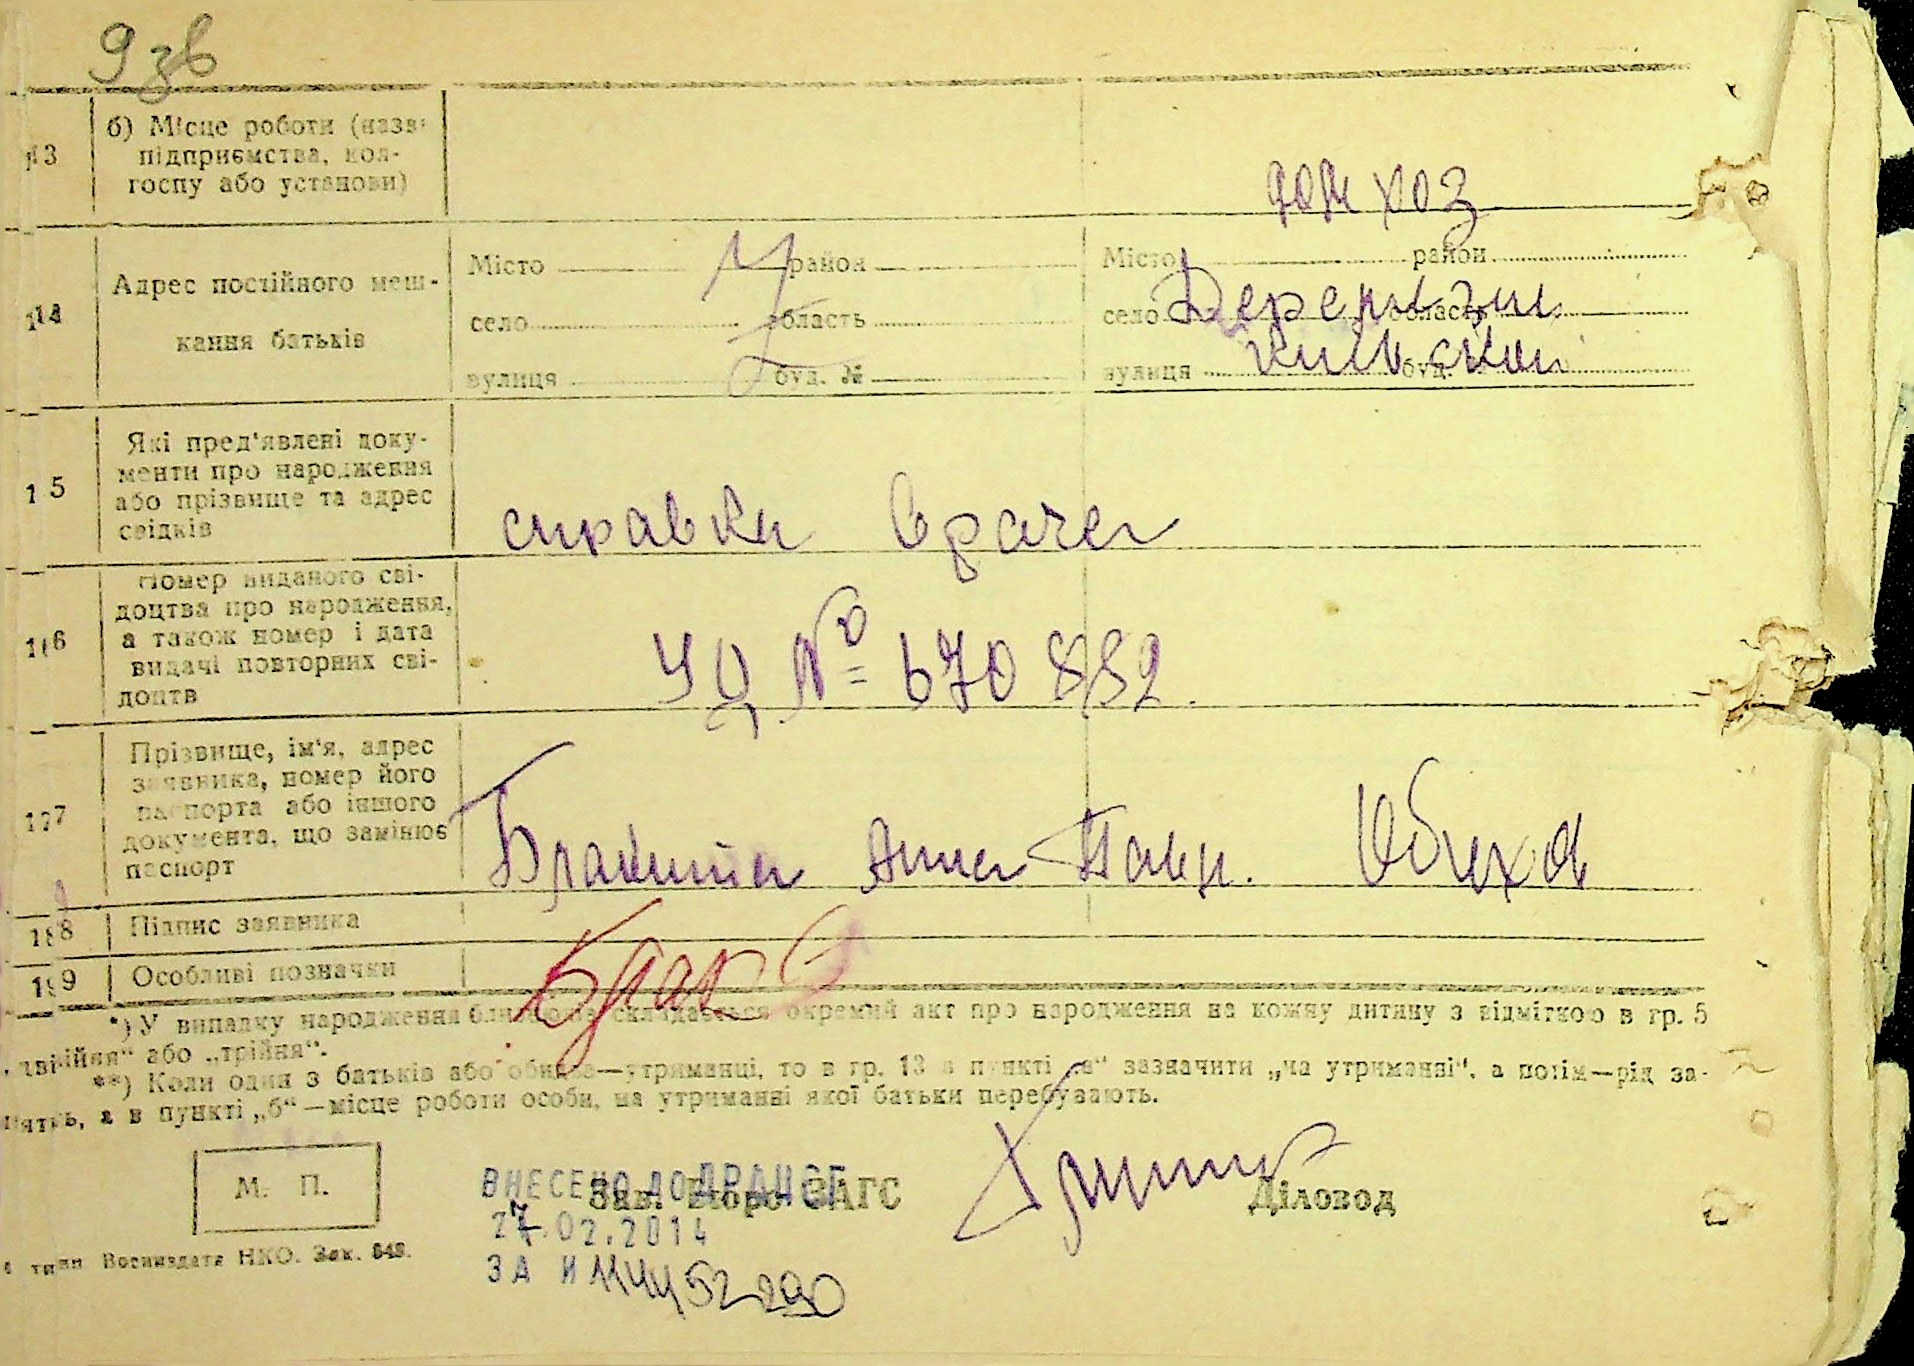 9 зв
13 б) Місце роботи (назва
підприємства, кол-
госпу або установи)
дом хоз
14 Адрес постійного меш-
кання батьків
Місто район
село область
вулиця буд. №
Місто район
село область
вулиця буд.
15 Які пред'явлені доку-
менти про народження
або прізвище та адрес
свідків
справка врача
16 Номер виданого сві-
доцтва про народження,
а також номер і дата
видачі повторних сві-
доцтв
УЦ № 670 882.
17 Прізвище, ім'я, адрес
заявника, номер його
паспорта або іншого
документа, що замінює
паспорт
Анна Павл.
18 Підпис заявника
19 Особливі позначки
*) У випадку народження близнят складається окремий акт про народження на кожну дитину з відміткою в гр. 5
„двійня“ або „трійня“.
**) Коли один з батьків або обидва—утриманці, то в гр. 13 в пункті „а“ зазначити „на утриманні“, а потім—рід за-
нять, а в пункті „б“—місце роботи особи, на утриманні якої батьки перебувають.
М. П.
Зав. Бюро ЗАГС
Діловод
ВНЕСЕНО ДО ДРАЦСГ
27.02.2014
ЗА
тип Воениздата НКО. Зак. 648.